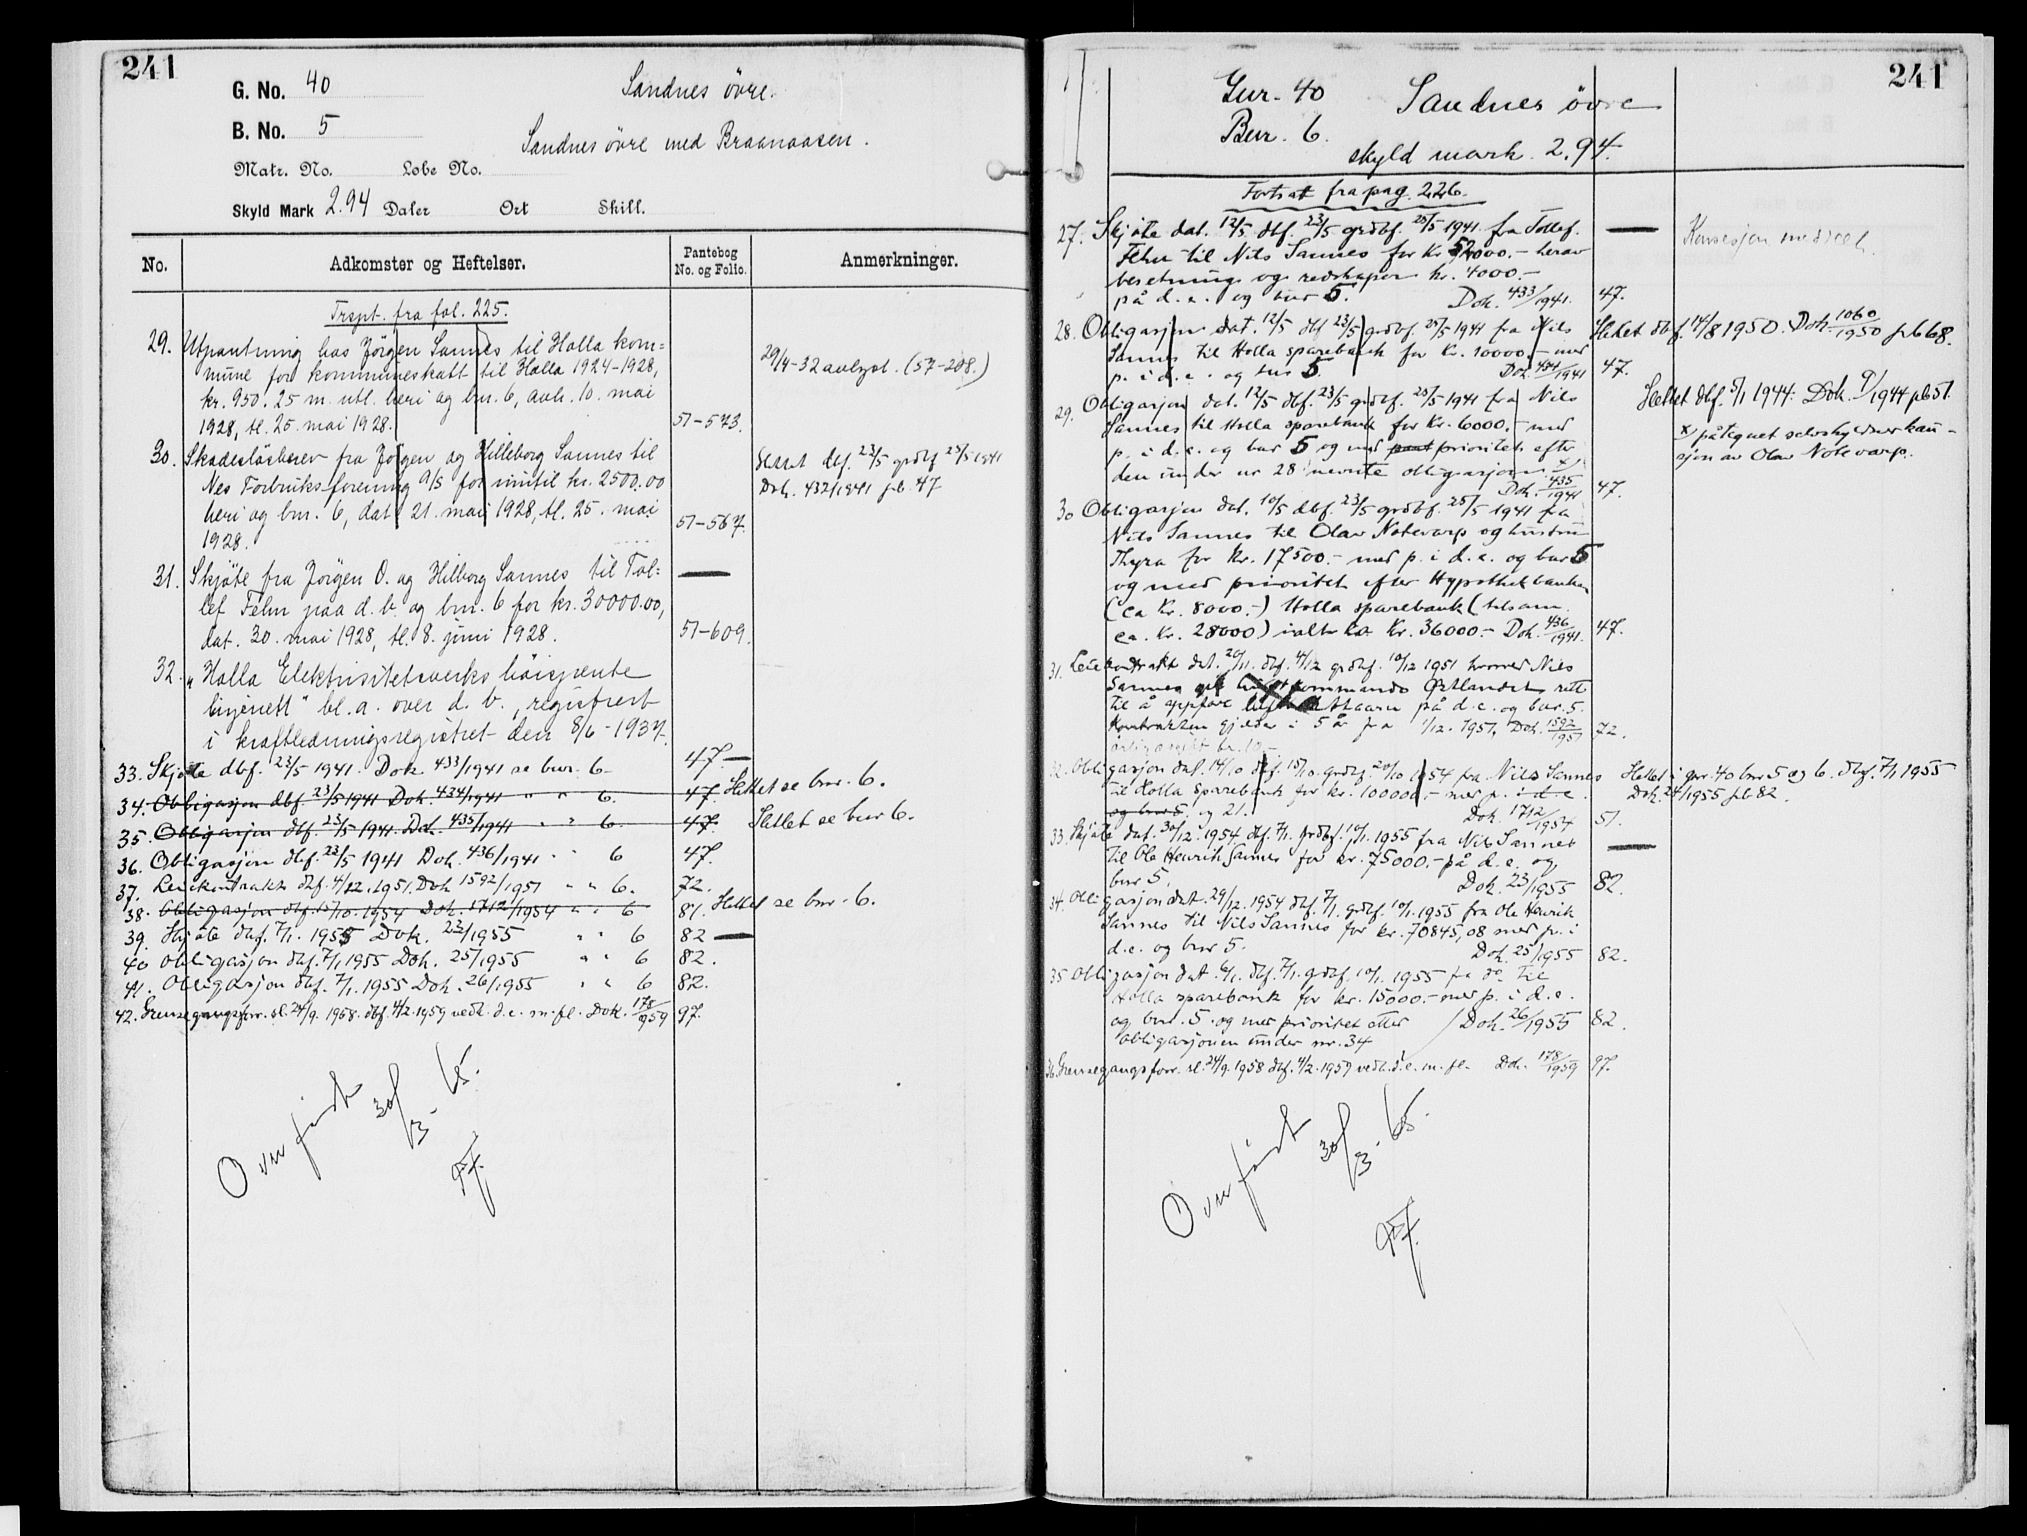 241
G. No. 40
Sandnes övre.
B. No. 5
Sandnes övre med Braanaasen.
Matr. No. Lobe No.
Skyld Mark 2.94 Daler Ort Skill.
No. Adkomster og Heftelser. Pantebog No. og Folio. Anmerkninger.
Trspt. fra fol. 225.
29. Utpantning hos Jörgen Sannes til Holla kom=
mune for kommuneskatt til Holla 1924-1928,
kr. 950.25 m. utl. heri og bnr. 6, avh. 10. mai
1928, tl. 25. mai 1928. 51-573.
29/4-32 avlyst. (57-208.)
30. Skadeslösbrev fra Jörgen og Hilleborg Sannes til
Nes Forbruksforening A/S for inntil kr. 2500.00
heri og bnr. 6, dat. 21. mai 1928, tl. 25. mai
1928. 51-567.
Slettet dbf. 23/5 grdbf 25/5 1941
Dok. 432/1941 pb. 47
31. Skjöte fra Jörgen O. og Hilborg Sannes til Tol=
lef Fehn paa d. b. og bnr. 6 for kr. 30000.00,
dat. 30. mai 1928, tl. 8. juni 1928. 51-609.
32. "Holla Elektrisitetsverks höispente
linjenett" bl.a. over d. b., registrert
i kraftledningsregistret den 8/6-1937.
33. Skjöte dbf. 23/5 1941. Dok 433/1941 se bnr. 6 47.—
34. Obligasjon dbf. 23/5 1941 Dok. 434/1941 " " 6. 47. Slettet se bnr. 6.
35. Obligasjon dbf. 23/5 1941. Dok. 435/1941 " " 6. 47. Slettet se bnr 6.
36. Obligasjon dbf. 23/5 1941 Dok. 436/1941 " " 6 47.
37. Leiekontrakt dbf. 4/12.1951. Dok 1592/1951 " " 6. 72.
38. Obligasjon dbf. 15/10.1954 Dok. 1712/1954 " " 6 81. Slettet se bnr. 6.
39. Skjöte dbf. 7/1. 1955 Dok. 23/1955 " " 6 82 —
40 Obligasjon dbf. 7/1 1955 Dok. 25/1955 " " 6 82.
41. Obligasjon dbf. 7/1. 1955 Dok. 26/1955 " " 6 82.
42. Grensegangsforr. sl. 24/9. 1958. dbf. 4/2. 1959 vedk. d.e. m. fl. Dok. 178/1959 97.
Overfört 30/3-65.
241
Gnr. 40 Sandnes övre
Bnr. 6.
skyld mark. 2.94.
Fortsat fra pag. 226.
27. Skjöte dat. 12/5 dbf. 23/5 grdbf. 25/5 1941. fra Tollef. —
Fehn til Nils Sannes for Kr 34000.- herav
besetning og redskaper kr. 4000.-
på d. e. og bnr 5. Dok. 433/1941. 47.
Konsesjon meddelt.
28. Obligasjon dat. 12/5 dbf 23/5 grdbf 25/5 1941 fra Nils
Sannes til Holla sparebank for Kr. 10000.- med
p. i d. e. og bnr 5. Dok. 434/1941 47.
Slettet dbf. 14/8 1950. Dok 1060/1950 pb 68.
29. Obligasjon dat. 12/5 dbf. 23/5 grdbf. 25/5 1941 fra Nils
Sannes til Holla sparebank for Kr. 6000.- med
p. i d. e. og bnr 5 og med pant prioritet efter
den under nr 28 nevnte obligasjon x) Dok. 435/1941 47.
Slettet dbf. 5/1 1944. Dok. 9/1944 pb 51.
x) påtegnet selvskyldnerkau-
sjon av Olav Notevarp.
30 Obligasjon dat. 10/5 dbf. 23/5 grdbf. 25/5 1941 fra
Nils Sannes til Olav Notevarp og hustru
Thyra for Kr. 17500.- med p. i d. e. og bnr 5
og med prioritet efter Hypothekbanken
(ca Kr. 8000.-) Holla sparebank (tilsam.
ca. Kr. 28000) ialt ca. Kr. 36000.- Dok. 436/1941. 47.
31. Leiekontrakt dat. 20/11. dbf. 4/12 grdbf. 10/12 1951 hvorved Nils
Sannes gir Luftkommando Östlandet rett
til å oppföre på d. e. og bnr. 5.
Kontrakten gjelder i 5 år fra 1/12. 1951, Dok. 1592/1951 72.
årlig avgift kr. 10.-
32. Obligasjon dat. 14/10 dbf. 15/10. grdbf. 20/10 1954 fra Nils Sannes
til Holla sparebank for kr. 10000.- med p. i d. e.
og bnr 5. og 21. Dok. 1712/1954 51.
Slettet i gnr. 40 bnr 5 og 6. dbf. 7/1 1955
Dok. 24/1955 pb 82.
33. Skjöte dat. 30/12. 1954 dbf. 7/1. grdbf. 10/1. 1955 fra Nils Sannes
til Ole Henrik Sannes for kr. 75000.- på d. e. og —
bnr 5. Dok. 23/1955 82.
34. Obligasjon dat. 29/12. 1954 dbf. 7/1. grdbf. 10/1. 1955 fra Ole Henrik
Sannes til Nils Sannes for kr. 70845,08 med p. i
d. e. og bnr 5. Dok. 25/1955 82.
35 Obligasjon dat. 6/1. dbf. 7/1. grdbf. 10/1. 1955 fra do til
Holla sparebank for kr. 15000.- med p. i d. e.
og bnr. 5. og med prioritet etter / Dok. 26/1955 82.
obligasjonen under nr. 34
36. Grensegangsforr. sl. 24/9. 1958 dbf. 4/2. 1959 vedk. d. e. m. fl. Dok. 178/1959 97.
Overfört 30/3-65.